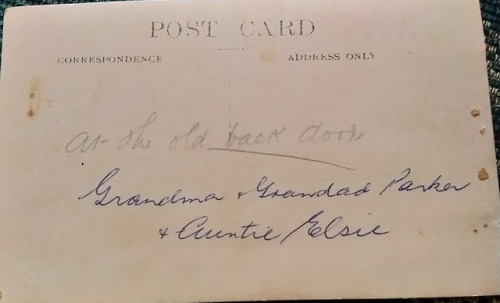 POST CARD
CORRESPONDENCE ADDRESS ONLY
at the old back door
Grandma & Grandad Parker
& Auntie Elsie